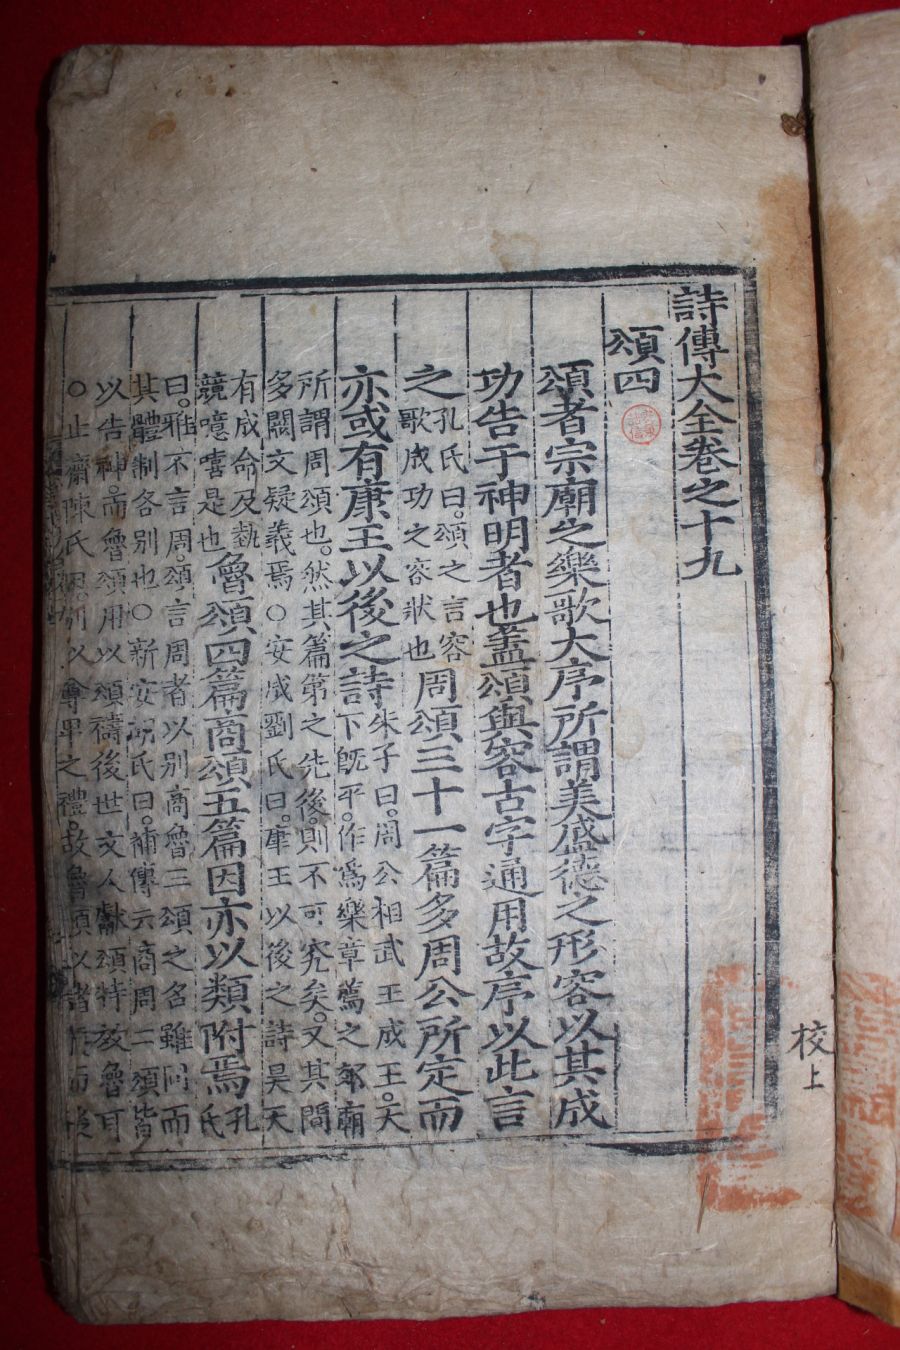 詩傳大全卷之十九
頌四
頌者宗廟之樂歌大序所謂美盛德之形容以其成
功告于神明者也蓋頌與容古字通用故序以此言
之
孔氏曰頌之言容
歌成功之容狀也
周頌三十一篇多周公所定而
亦或有康王以後之詩
朱子曰周公相武王成王天
下旣平作爲樂章薦之郊廟
所謂周頌也然其篇第之先後則不可究矣又其間
多闕文疑義焉○安成劉氏曰康王以後之詩昊天
有成命及執
競噫嘻是也
魯頌四篇商頌五篇因亦以類附焉
孔
氏
曰雅不言周頌言周者以別商魯三頌之名雖同而
其體制各別也○新安胡氏曰補傳云商周二頌皆
以告神而魯頌用以頌禱後世文人獻頌特效魯可
○止齋陳氏曰別以尊卑之禮故魯頌以諸
校上